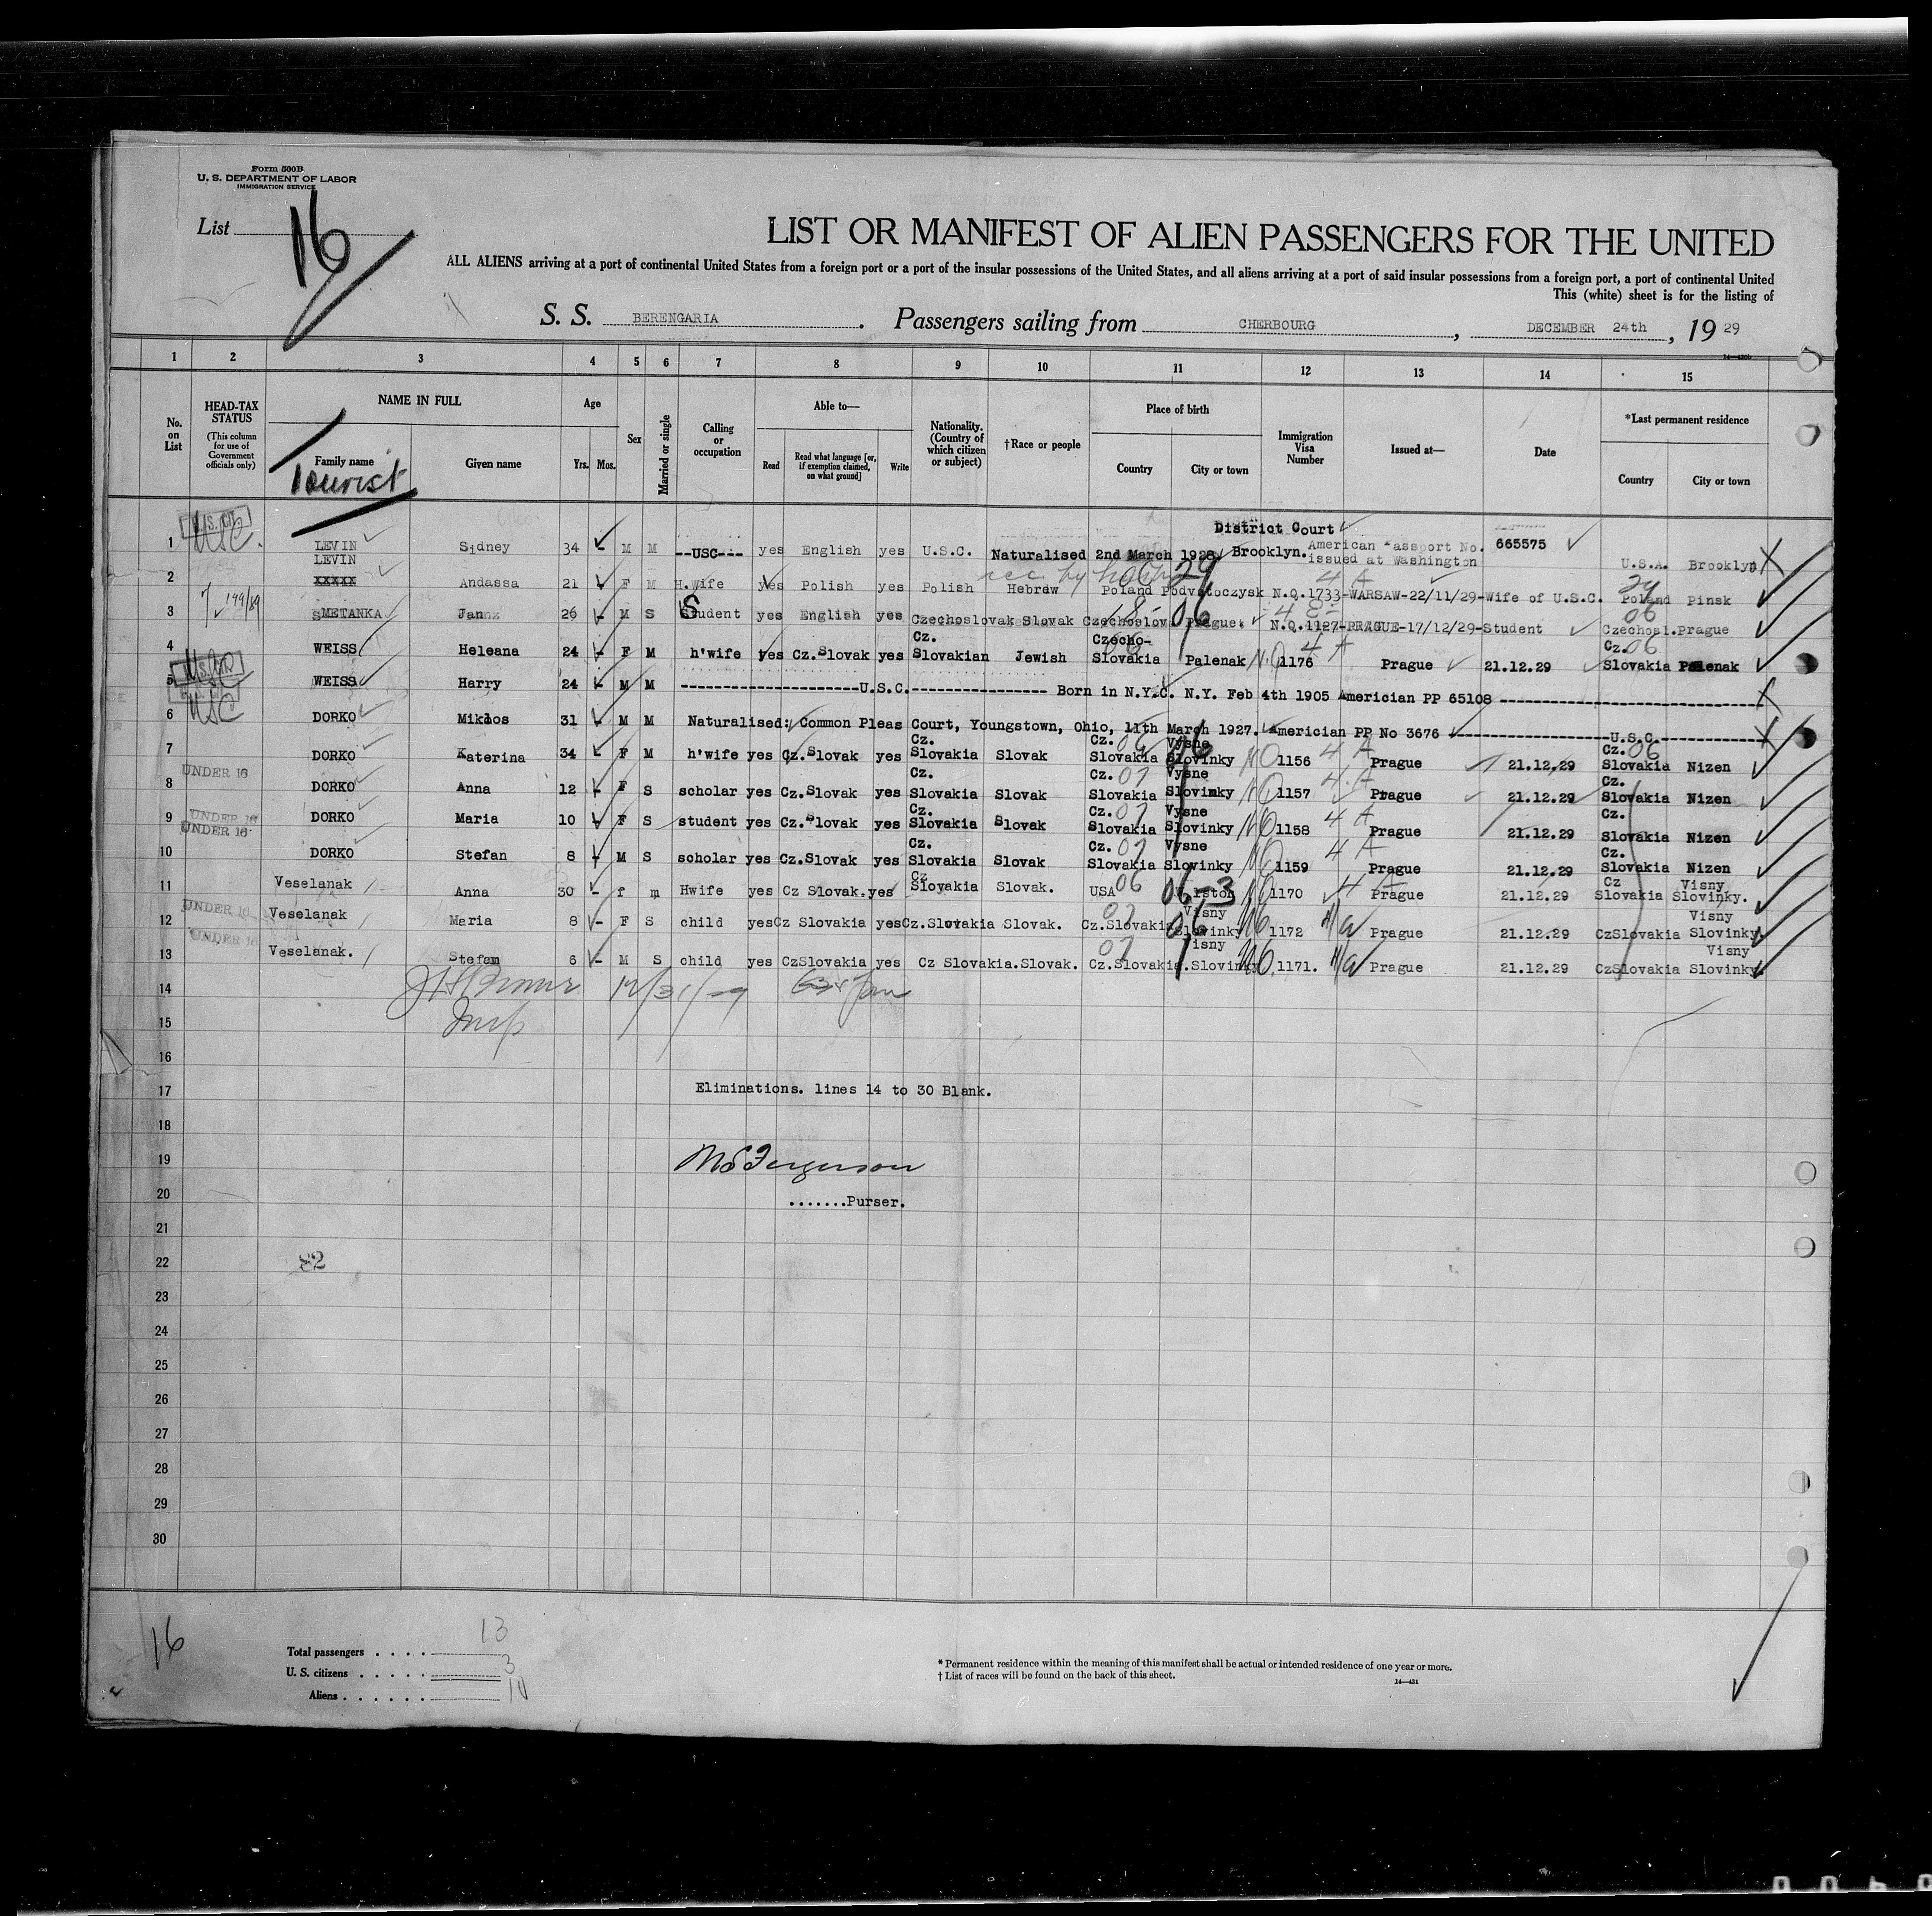 Form 500B
U. S. DEPARTMENT OF LABOR
IMMIGRATION SERVICE
List 16
LIST OR MANIFEST OF ALIEN PASSENGERS FOR THE UNITED
ALL ALIENS arriving at a port of continental United States from a foreign port or a port of the insular possessions of the United States, and all aliens arriving at a port of said insular possessions from a foreign port, a port of continental United
This (white) sheet is for the listing of
S. S. BERENGARIA. Passengers sailing from CHERBOURG, DECEMBER 24th, 19 29
1 2 3 4 5 6 7 8 9 10 11 12 13 14 15
No. on List
HEAD-TAX STATUS (This column for use of Government officials only)
NAME IN FULL
Family name
Given name
Tourist
Age
Yrs. Mos.
Sex
Married or single
Calling or occupation
Able to—
Read
Read what language [or, if exemption claimed, on what ground]
Write
Nationality. (Country of which citizen or subject)
†Race or people
Place of birth
Country
City or town
Immigration Visa Number
Issued at—
Date
*Last permanent residence
Country
City or town
1 USC. LEVIN Sidney 34 - M M --USC--- yes English yes U.S.C. Naturalised 2nd March 1928 District Court Brooklyn. American Passport No. 665575 issued at Washington U.S.A. Brooklyn
2 LEVIN XXXXX Andassa 21 F M H.Wife yes Polish yes Polish Hebrew Poland Podvotoczysk N.Q.1733-WARSAW-22/11/29-Wife of U.S.C. Poland Pinsk
3 SMETANKA Jan 26 M S Student yes English yes Czechoslovak Slovak Czechoslov Prague. N.Q.1127-PRAGUE-17/12/29-Student Czechosl.Prague
4 WEISS Heleana 24 - F M h'wife yes Cz.Slovak yes Cz. Slovakian Jewish Czecho- Slovakia Palenak NQ 1176 4 A Prague 21.12.29 Cz. Slovakia Palenak
5 WEISS Harry 24 - M M ----U.S.C.---- Born in N.Y.C. N.Y. Feb 4th 1905 Americian PP 65108 ----
6 USC DORKO Miklos 31 - M M Naturalised: Common Pleas Court, Youngstown, Ohio, 11th March 1927. Americian PP No 3676 ----U.S.C.----
7 DORKO Katerina 34 - F M h'wife yes Cz.Slovak yes Cz. Slovakia Slovak Cz. Slovakia Vysne Slovinky NQ 1156 4 A Prague 21.12.29 Cz. Slovakia Nizen
8 UNDER 16 DORKO Anna 12 - F S scholar yes Cz.Slovak yes Cz. Slovakia Slovak Cz. Slovakia Vysne Slovinky NQ 1157 4 A Prague 21.12.29 Cz. Slovakia Nizen
9 UNDER 16 DORKO Maria 10 F S student yes Cz.Slovak yes Cz. Slovakia Slovak Cz. Slovakia Vysne Slovinky NQ 1158 4 A Prague 21.12.29 Cz. Slovakia Nizen
10 UNDER 16 DORKO Stefan 8 M S scholar yes Cz.Slovak yes Cz. Slovakia Slovak Cz. Slovakia Vysne Slovinky NQ 1159 4 A Prague 21.12.29 Cz. Slovakia Nizen
11 Veselanak Anna 30 - f m Hwife yes Cz Slovak.yes Cz. Slovakia Slovak. USA NQ 1170 4 A Prague 21.12.29 Cz Slovakia Visny Slovinky.
12 UNDER 16 Veselanak Maria 8 - F S child yes Cz Slovakia yes Cz.Slovakia Slovak. Cz.Slovakia Visny Slovinky 1172 Prague 21.12.29 CzSlovakia Visny Slovinky.
13 UNDER 16 Veselanak. Stefan 6 - M S child yes CzSlovakia yes Cz Slovakia.Slovak. Cz.Slovakia. Visny Slovinky 1171. Prague 21.12.29 CzSlovakia Visny Slovinky.
14 12/31/29
15
16
17 Eliminations. lines 14 to 30 Blank.
18
19 Ferguson
20 .......Purser.
21
22 82
23
24
25
26
27
28
29
30
16
Total passengers . . . . 13
U. S. citizens . . . . . 3
Aliens . . . . . . 10
* Permanent residence within the meaning of this manifest shall be actual or intended residence of one year or more.
† List of races will be found on the back of this sheet.
14—431